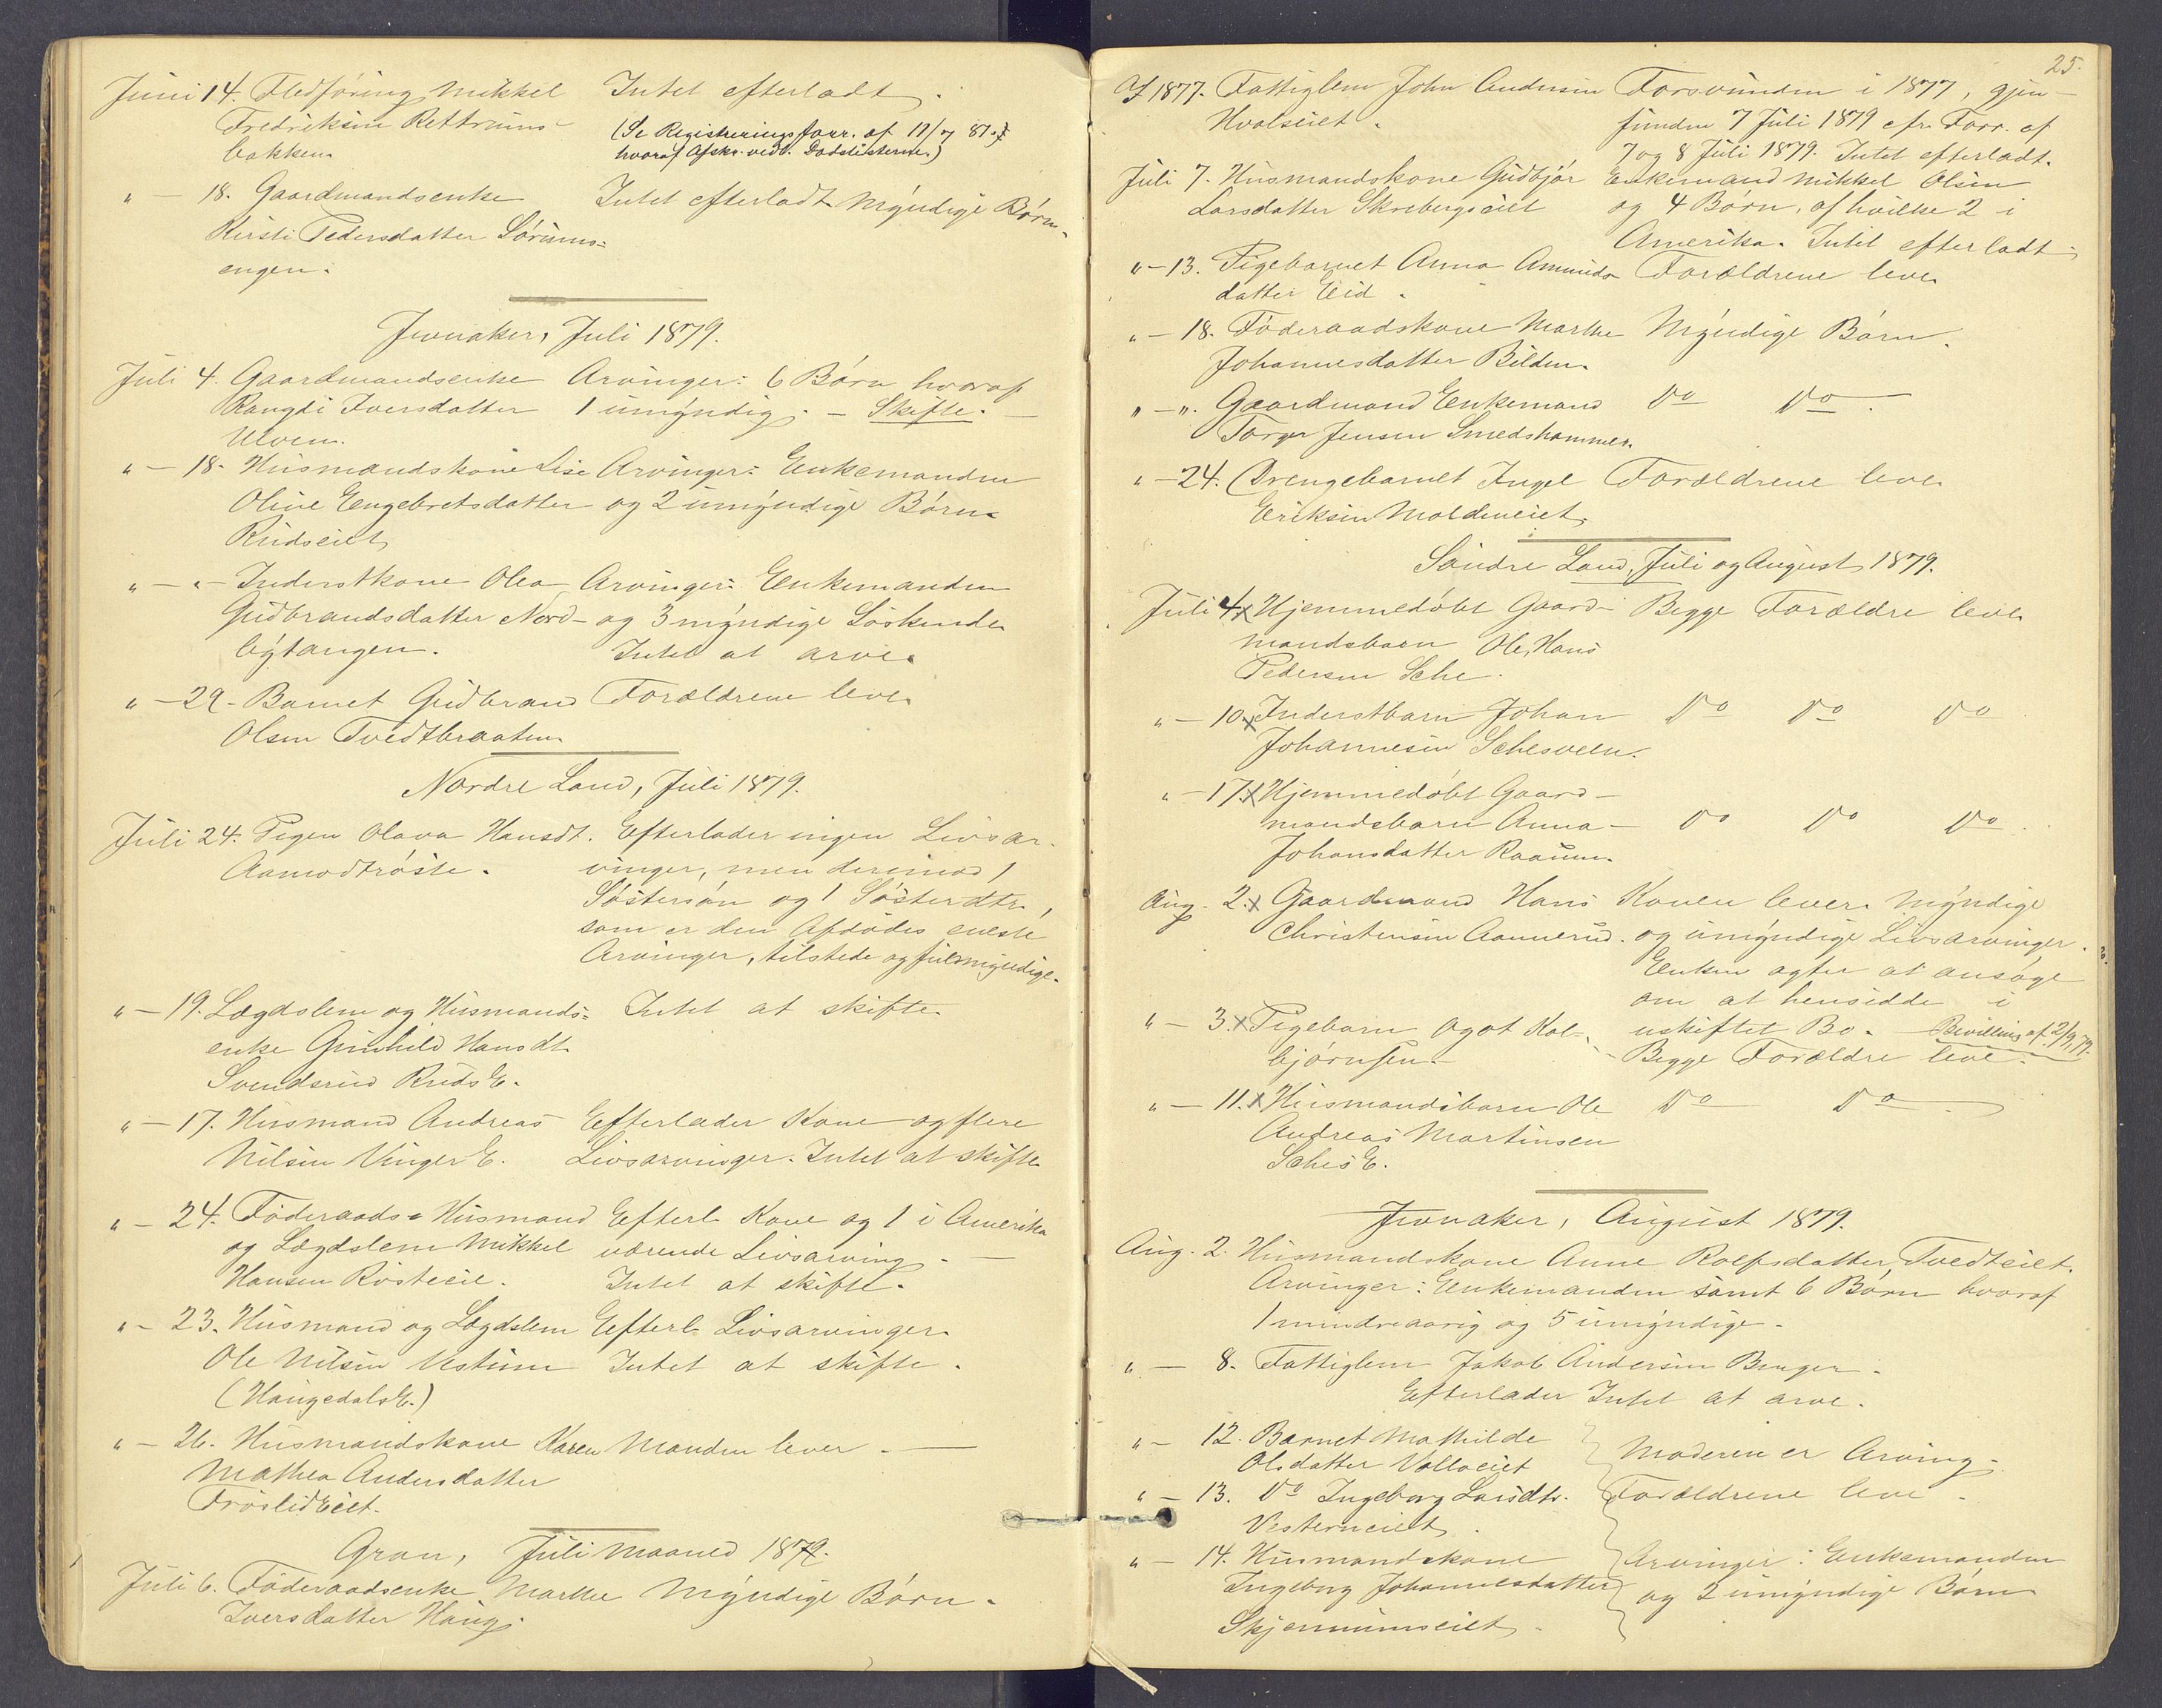 Juni 14. Fledføring Mikkel Intet efterladt.
Fredriksen Rettrums- (Se Registreringsforr. af 11/7 81
bakken hvoraf Afskr. vedl. Dødslisterne.)
" — 18. Gaardmandsenke Intet efterladt. Myndige Børn.
Kirsti Pedersdatter Sørums-
engen.
Jevnaker, Juli 1879.
Juli 4. Gaardmandsenke Arvinger: 6 Børn hvoraf
Rangdi Iversdatter 1 umyndig. — Skifte. —
Ulven.
" — 18. Husmandskone Lise Arvinger: Enkemanden
Oline Engebretsdatter og 2 umyndige Børn.
Rudseiet
" — " Inderstkone Olea Arvinger: Enkemanden
Gudbrandsdatter Nord- og 3 myndige Søskende
bytangen. Intet at arve.
" — 29. Barnet Gudbrand Forældrene leve.
Olsen Tvedtbraaten.
Nordre Land, Juli 1879.
Juli 24. Pigen Olava Hansdt. Efterlader ingen Livsar-
Aamodtrøste. vinger, men derimod 1
Søstersøn og 1 Søsterdtr.,
som er den Afdødes eneste
Arvinger, tilstede og fuldmyndige.
" — 19. Lægdslem og Husmands- Intet at skifte.
enke Gunhild Hansdt.
Svendsrud RudsE.
" — 17. Husmand Andreas Efterlader Kone og flere
Nilsen VingerE. Livsarvinger. Intet at skifte
" — 24. Føderaads-Husmand Efterl. Kone og 1 i Amerika
og Lægdslem Mikkel værende Livsarving. —
Hansen Rosteeie. Intet at skifte.
" — 23. Husmand og Lægdslem Efterl. Livsarvinger.
Ole Nilsen Intet at skifte.
(HaugedalsE.)
" — 26. Husmandskone Karen Manden lever. —
Mathea Andersdatter
FrøslidEiet.
Gran, Juli Maaned 1879.
Juli 6. Føderaadsenke Marthe Myndige Børn.
Iversdatter Haug.
25.
Af 1877. Fattiglem John Andersen Forsvunden i 1877, gjen-
Hvalseiet. funden 7 Juli 1879 cfr. Forr. af
7 og 8 Juli 1879. Intet efterladt.
Juli 7. Husmandskone Gudbjør Enkemand Mikkel Olsen
Larsdatter Skrebergseiet og 4 Børn, af hvilke 2 i
Amerika. Intet efterladt.
" — 13. Pigebarnet Anna Amunds- Forældrene leve.
datter Eid.
" — 18. Føderaadskone Marthe Myndige Børn.
Johannesdatter Bilden.
" — ". Gaardmand Enkemand Do Do.
Torger Jensen Smedshammer.
" — 24. Drengebarnet Ingel Forældrene leve.
Eriksen Moldeneiet.
Søndre Land, Juli og August 1879.
Juli 4. x Hjemmedøbt Gaard- Begge Forældre leve.
mandsbarn Ole Hans
Pedersen Sche.
" — 10. x Inderstbarn Johan Do Do Do.
Johannesen Schesveen.
" — 17. x Hjemmedøbt Gaard-
mandsbarn Anna — Do Do Do.
Johansdatter Raaum.
Aug. 2. x Gaardmand Hans Konen lever. Myndige
Christensen Aannerud. og umyndige Livsarvinger.
Enken agter at ansøge
om at hensidde i
" — 3. x Pigebarn Agot Kol- uskiftet Bo. — Bevilling af 2/9 79.
bjørnsen. Begge Forældre leve.
" — 11. x Husmandsbarn Ole Do Do.
Andreas Martinsen
SchesE.
Jevnaker, August 1879.
Aug. 2. Husmandskone Anne Rolfsdatter, Tvedteiet.
Arvinger: Enkemanden samt 6 Børn hvoraf
1 mindreaarig og 5 umyndige.
" — 8. Fattiglem Jakob Andersen Benger.
Efterlader Intet at arve.
" — 12. Barnet Mathilde Moderen er Arving.
Olsdatter Volloeiet
" — 13. Do Ingeborg Larsdtr. Forældrene leve.
Vesterneiet.
" — 14. Husmandskone Arvinger: Enkemanden
Ingeborg Johannesdatter og 2 umyndige Børn
Skjerunnseiet.